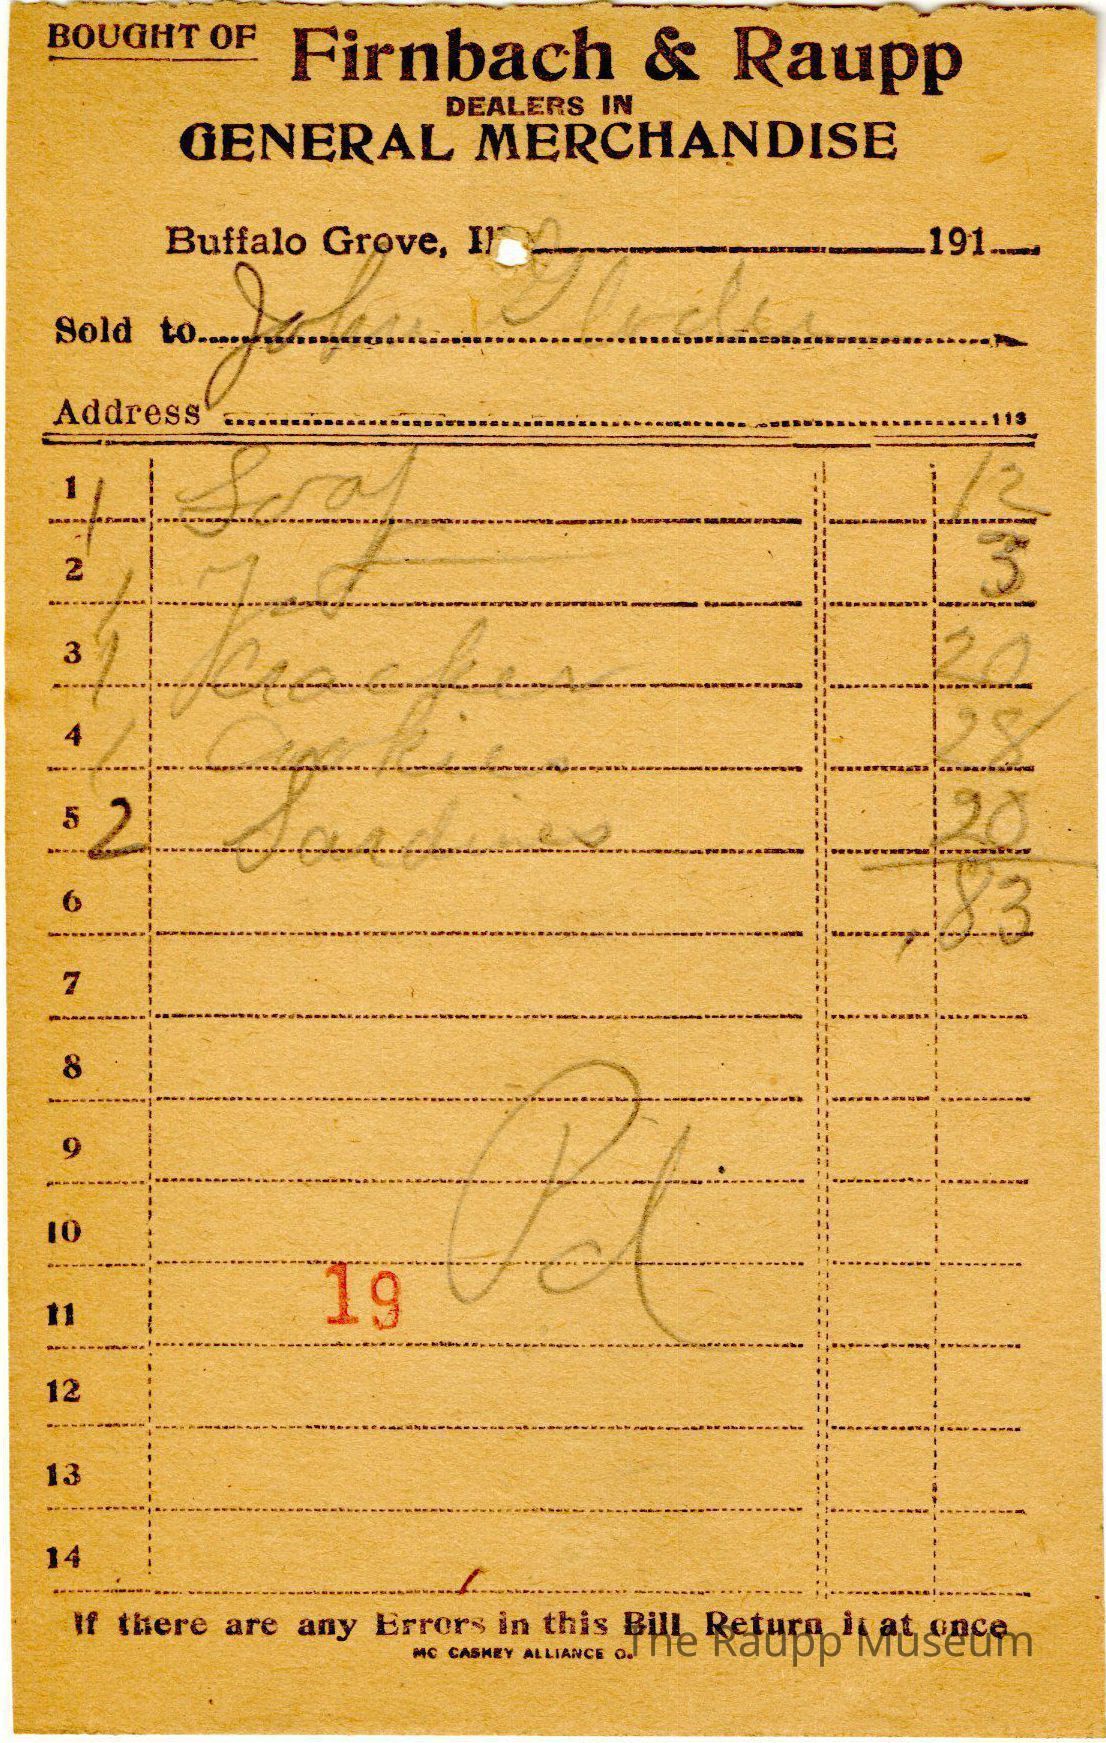 BOUGHT OF Firnbach & Raupp
DEALERS IN
GENERAL MERCHANDISE
Buffalo Grove, Ill 191
Sold to John
Address 113
1 1 Soap 12
2 1 3
3 1 Kracker 20
4 1 Cookies 28
5 2 Sardines 20
6 .83
7
8
9
Pd
10
11 19
12
13
14
If there are any Errors in this Bill Return it at once
MC CASKEY ALLIANCE O.
The Raupp Museum